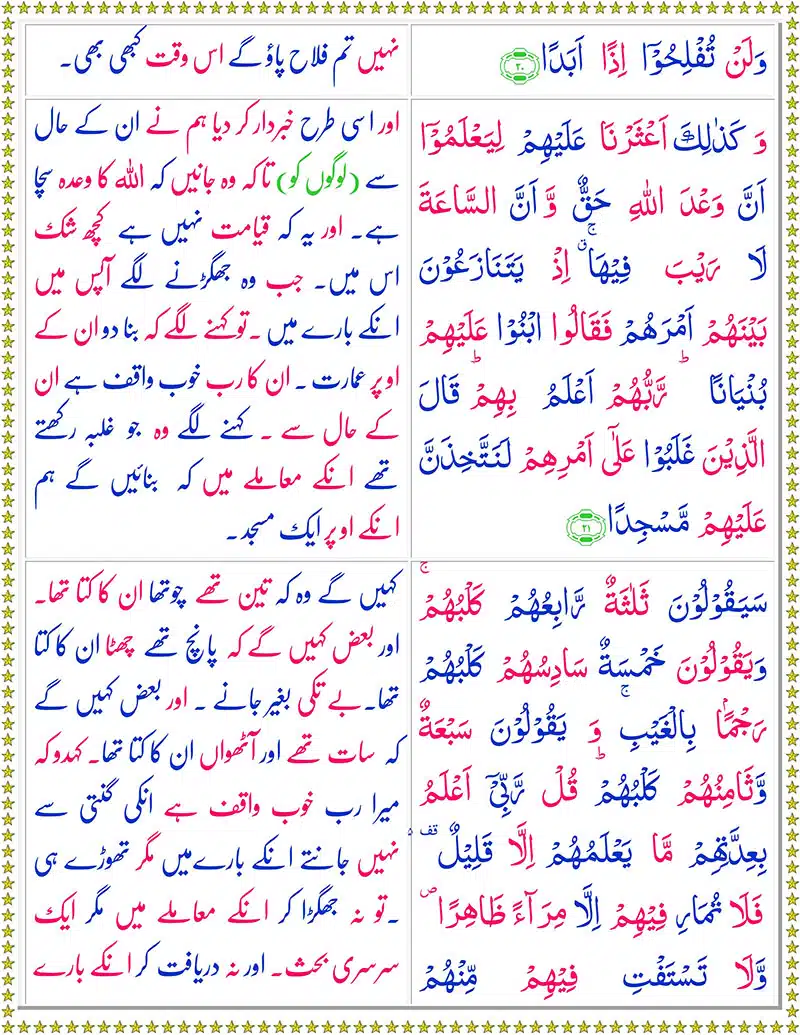 وَلَنْ تُفْلِحُوْٓا اِذًا اَبَدًا ﴿۲۰﴾
نہیں تم فلاح پاؤ گے اس وقت کبھی بھی۔
وَ كَذٰلِكَ اَعْثَرْنَا عَلَيْهِمْ لِيَعْلَمُوْٓا
اَنَّ وَعْدَ اللهِ حَقٌّ وَّ اَنَّ السَّاعَةَ
لَا رَيْبَ فِيْهَا ۚۗ اِذْ يَتَنَازَعُوْنَ
بَيْنَهُمْ اَمْرَهُمْ فَقَالُوا ابْنُوْا عَلَيْهِمْ
بُنْيَانًا ؕ رَّبُّهُمْ اَعْلَمُ بِهِمْ ؕ قَالَ
الَّذِيْنَ غَلَبُوْا عَلٰٓى اَمْرِهِمْ لَنَتَّخِذَنَّ
عَلَيْهِمْ مَّسْجِدًا ﴿۲۱﴾
اور اسی طرح خبردار کر دیا ہم نے ان کے حال
سے (لوگوں کو) تاکہ وہ جانیں کہ اللہ کا وعدہ سچا
ہے۔ اور یہ کہ قیامت نہیں ہے کچھ شک
اس میں۔ جب وہ جھگڑنے لگے آپس میں
انکے بارے میں ۔تو کہنے لگے کہ بنا دو ان کے
اوپر عمارت ۔ ان کا رب خوب واقف ہے ان
کے حال سے ۔ کہنے لگے وہ جو غلبہ رکھتے
تھے انکے معاملے میں کہ بنائیں گے ہم
انکے اوپر ایک مسجد۔
سَيَقُوْلُوْنَ ثَلٰثَةٌ رَّابِعُهُمْ كَلْبُهُمْ ۚ
وَيَقُوْلُوْنَ خَمْسَةٌ سَادِسُهُمْ كَلْبُهُمْ
رَجْمًۢا بِالْغَيْبِ ۚ وَ يَقُوْلُوْنَ سَبْعَةٌ
وَّثَامِنُهُمْ كَلْبُهُمْ ؕ قُلْ رَّبِّيْٓ اَعْلَمُ
بِعِدَّتِهِمْ مَّا يَعْلَمُهُمْ اِلَّا قَلِيْلٌ ۫ قف
فَلَا تُمَارِ فِيْهِمْ اِلَّا مِرَآءً ظَاهِرًا ۪
وَّلَا تَسْتَفْتِ فِيْهِمْ مِّنْهُمْ
کہیں گے وہ کہ تین تھے چوتھا ان کا کتا تھا۔
اور بعض کہیں گے کہ پانچ تھے چھٹا ان کا کتا
تھا۔ بے تکی بغیر جانے ۔ اور بعض کہیں گے
کہ سات تھے اور آٹھواں ان کا کتا تھا۔ کہدو کہ
میرا رب خوب واقف ہے انکی گنتی سے
نہیں جانتے انکے بارےمیں مگر تھوڑے ہی
۔تو نہ جھگڑا کر انکے معاملے میں مگر ایک
سرسری بحث۔ اور نہ دریافت کر انکے بارے